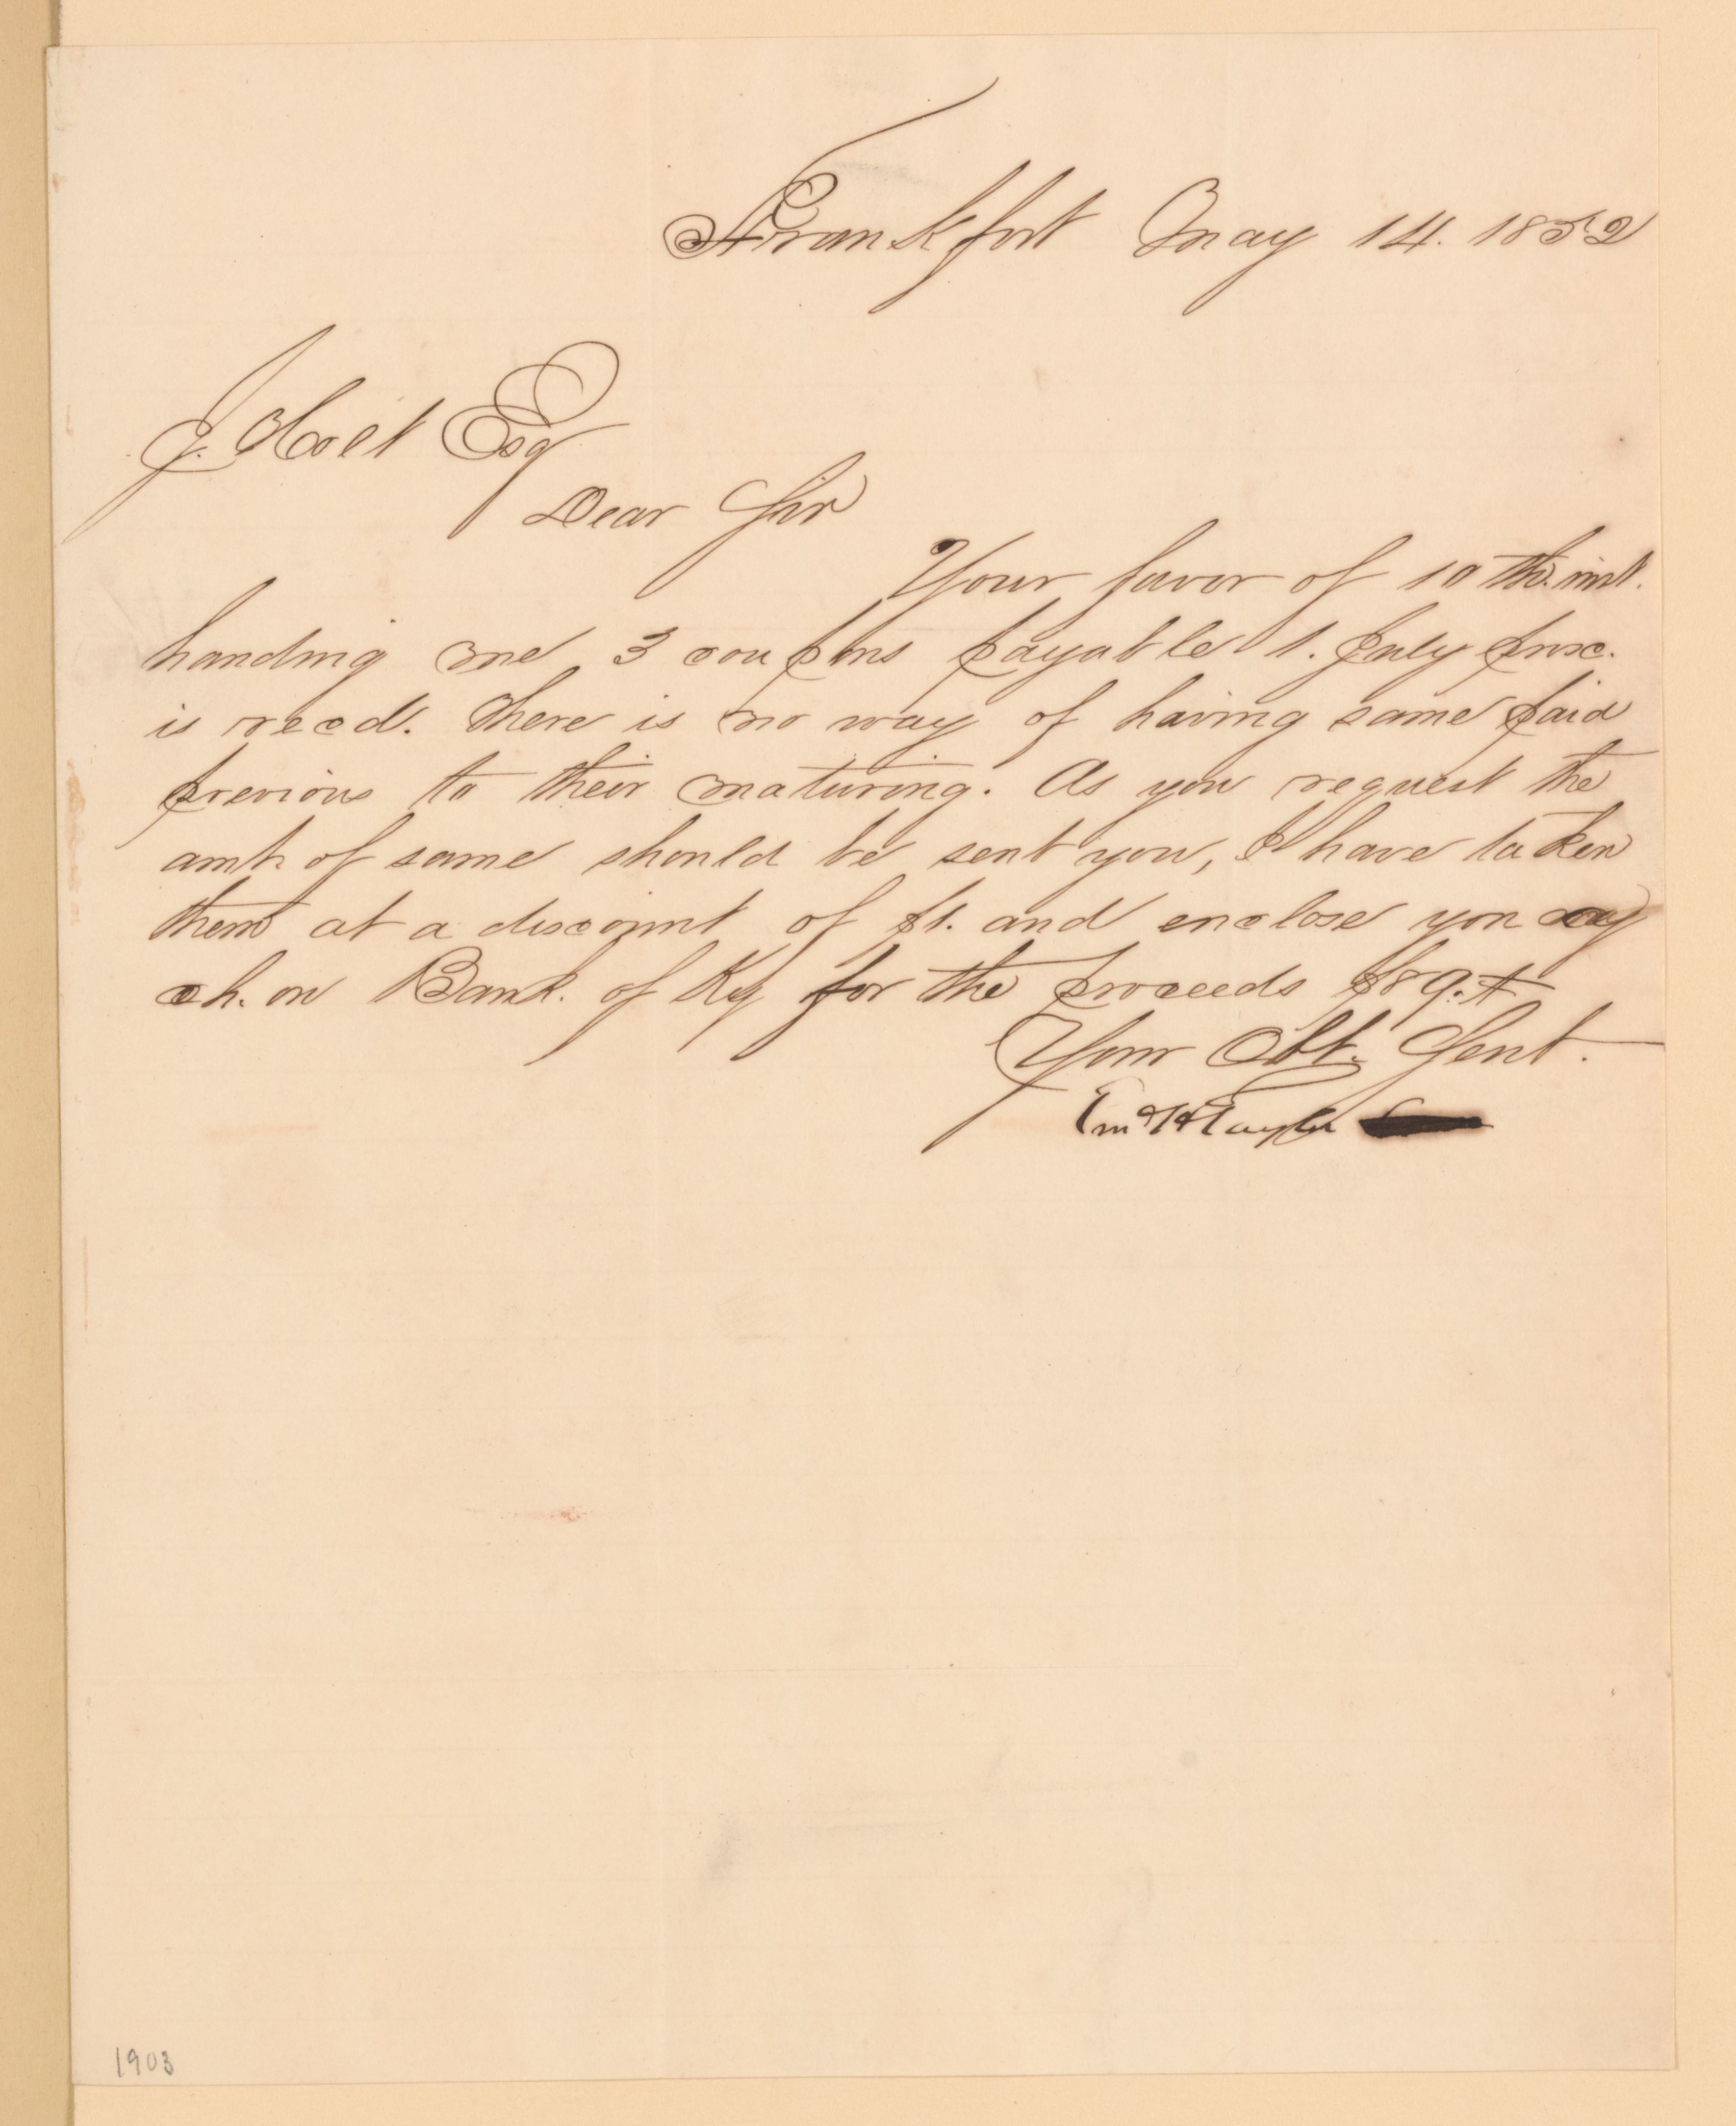 Frankfort May 14. 1852
J. Holt Esq
Dear Sir
Your favor of 10th. inst.
handing me 3 coupons payable 1. July prox.
is recd. There is no way of having same paid
previous to their maturing. As you request the
amt. of same should be sent you, I have taken
them at a discount of $1. and enclose you my
ch. on Bank. of Ky for the proceeds $89.
Your Obt. Servt.
Edm H Taylor
1903